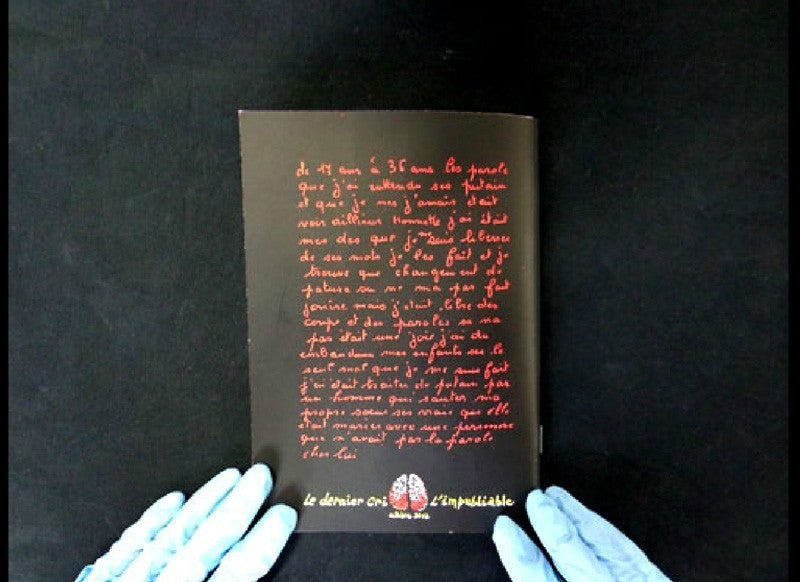 de 17 ans à 36 ans les parole
que j'ai entendu ses putain
et que je mes j'amais était
voir ailleur Honnette j'ai était
mes des que je me suis liberer
de ses mots je les fait et je
trouve que changement de
pature ou ne ma pas fait
jouire mais j'était libre des
coups et des paroles sa na
pas était une joie j'ai du
embandonn mes enfants ses le
seul mal que je me suis fait
j'ai était traiter de putain par
un homme qui sauter ma
propre soeur ses vrais que elle
était marier avec une personne
que n'avait pas la parole
ches lui
Le dernier cri L'impubliable
2012